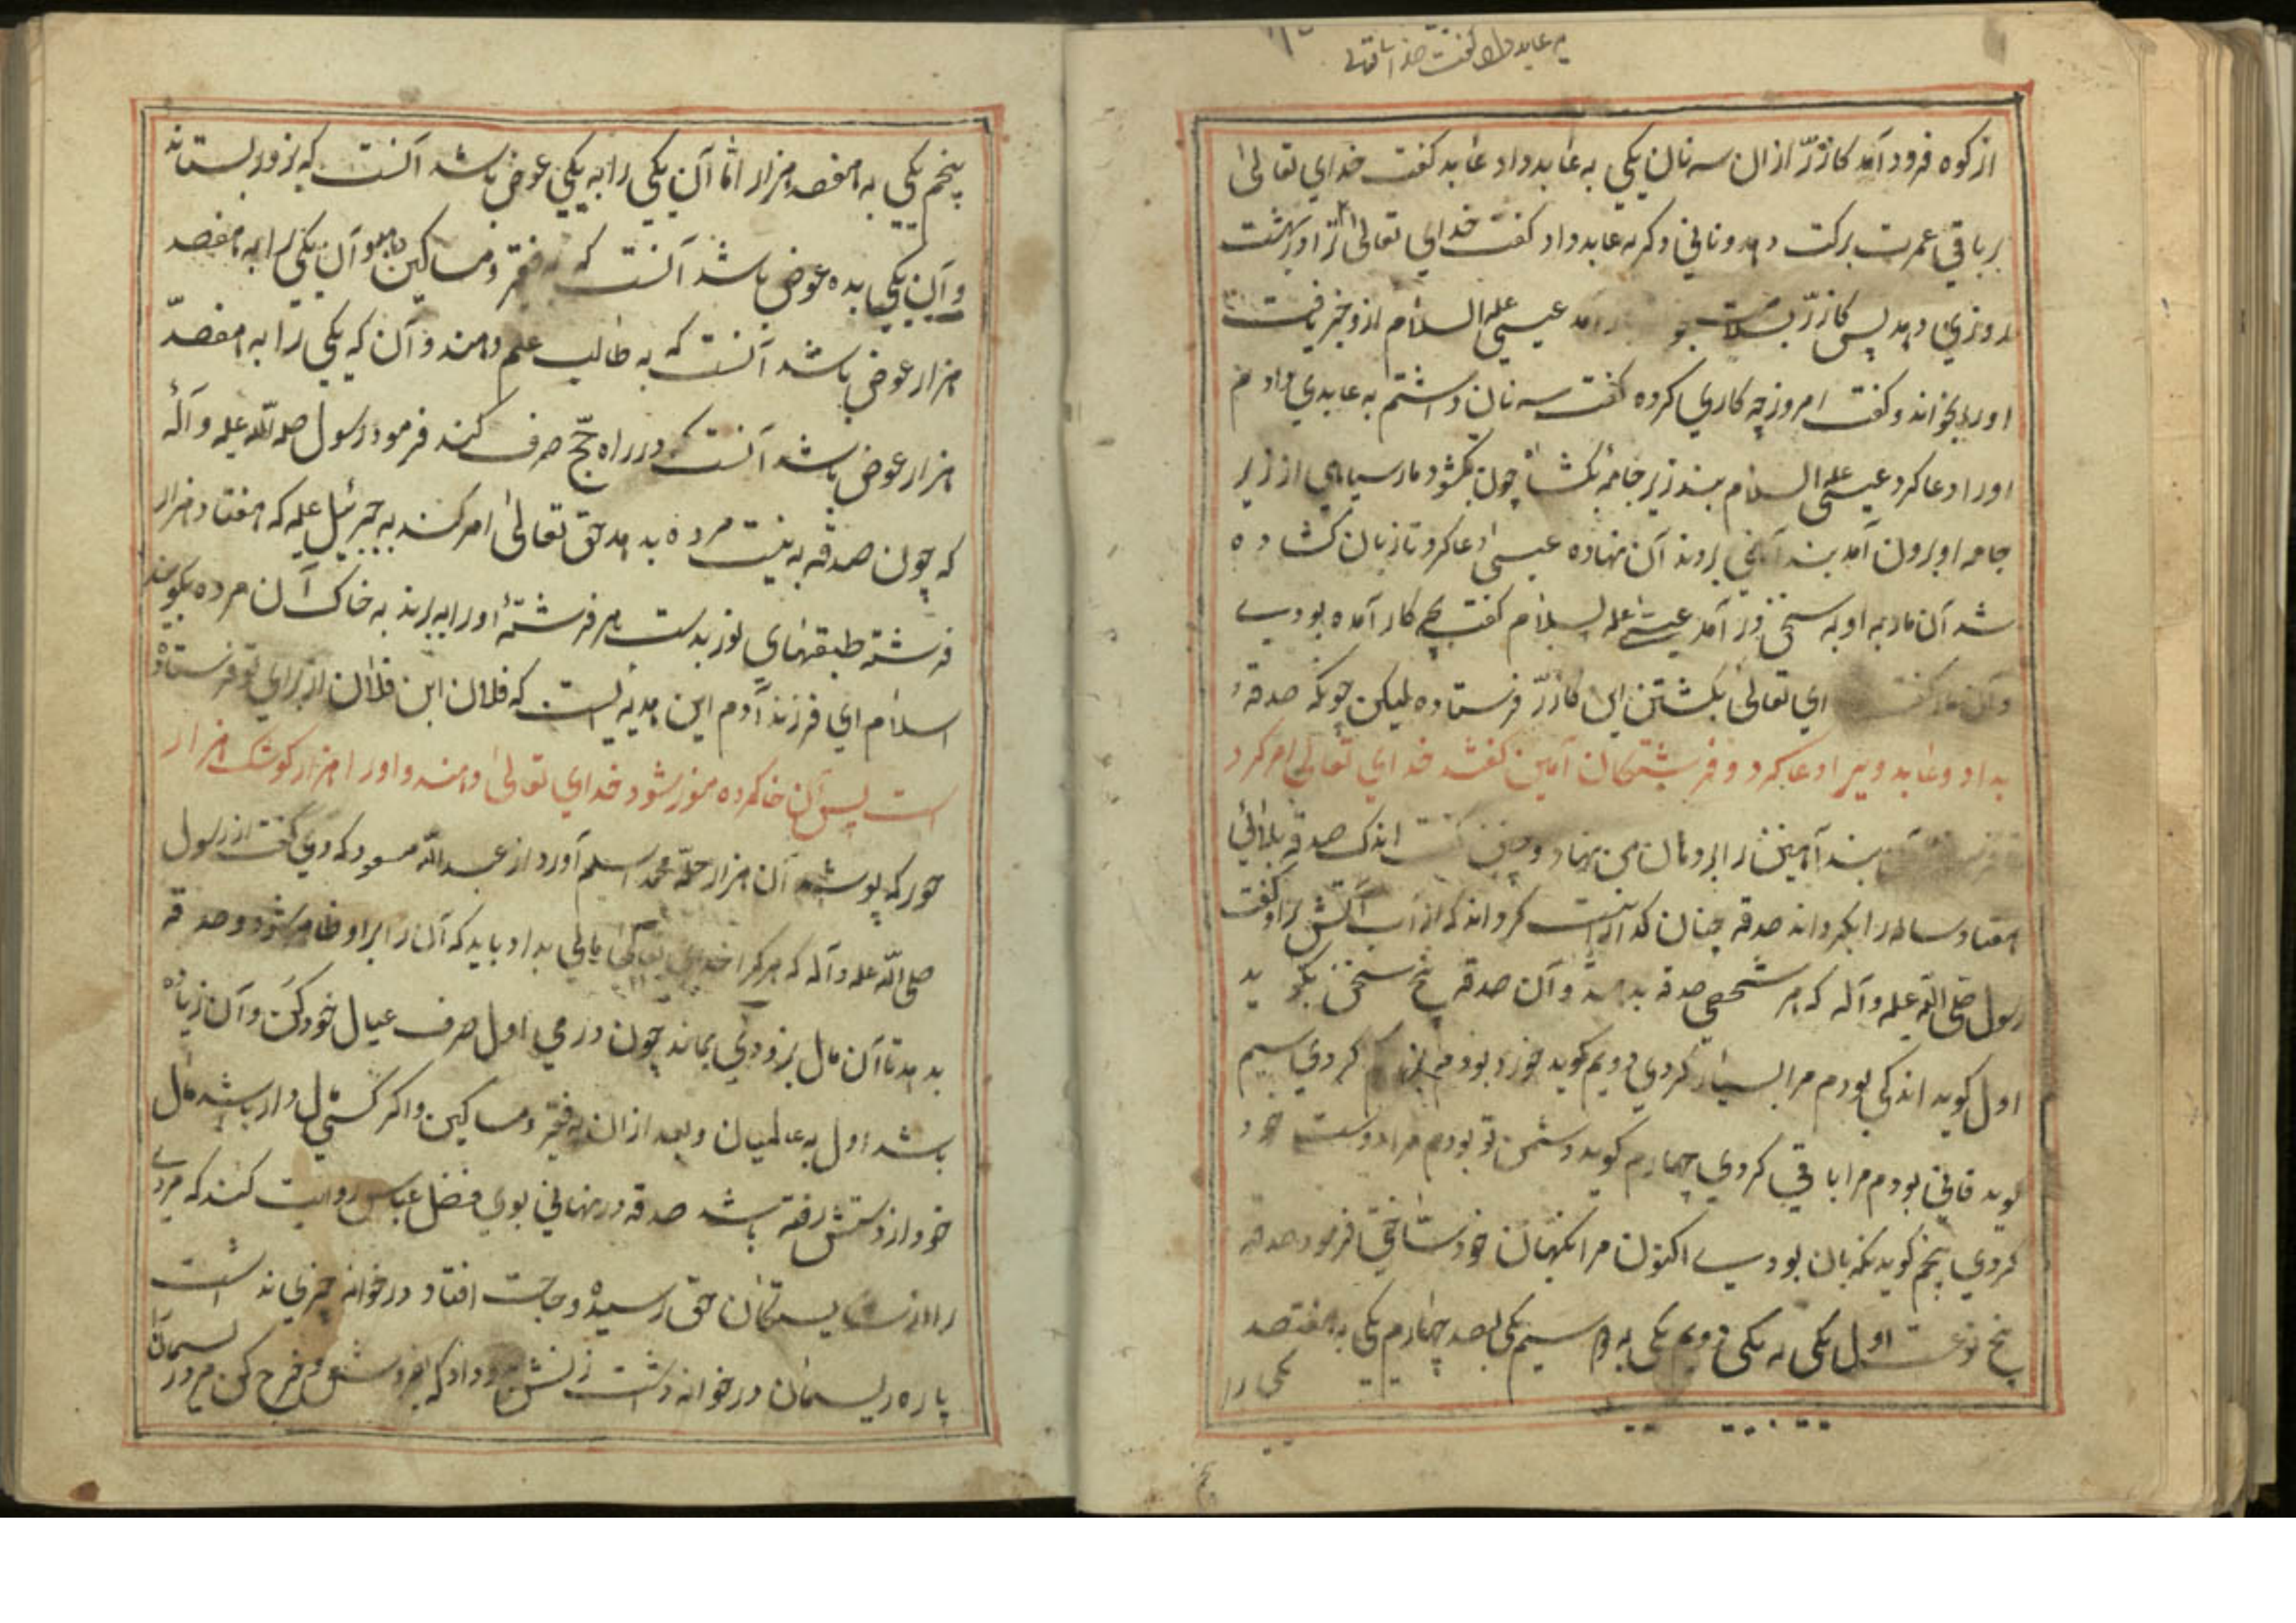 از کوه فرود آمد کازرّ از ان سه نان یکی به عابد داد عابد کفت خدای تعالیٰ
بر باقی عمرت برکت دهد و نانی دکر به عابد داد کفت خدای تعالیٰ ترا در بهشت
روزی دهد پس کازرّ بسلامت آمد عیسی علیه السلام از و خبر یافت
اورا بخواند و کفت امروز چه کاری کرده کفت سه نان داشتم به عابدی دادم
اورا دعا کرد عیسی علیه السلام بند زیر جامه بکشا چون بکشود مار سیاهی از زیر
جامه او برون آمد بند آهنی بر دهن آن نهاده عیسیٰ دعا کرد تا زبان کشاده
شد آن مار به او به سخن در آمد عیسیٰ علیه السلام کفت بچه کار آمده بودی
آن مار کفت ای تعالیٰ بکشتن این کازرّ فرستاده لیکن چونکه صدقه
بداد و عابد ویرا دعا کرد و فرشتکان آمین کفتند خدای تعالیٰ امر کرد
بند آهنین را بر دهان من نهاد و کفت اندک صدقه بلائی
هفتاد ساله را بکرداند صدقه چنان کرداند که از آب آتش را و کفت
رسول صلی الله علیه و آله که هر شخصی صدقه بدهد و آن صدقه پنج سخن بکوید
اول کوید اندکی بودم مرا بسیار کردی دویم کوید خورد بودم بزرکم کردی سیم
کوید فانی بودم مرا باقی کردی چهارم کوید دشمن تو بودم مرا دوست خود
کردی پنجم کوید نکهبان بودی اکنون مرا نکهبان خود ساختی فرمود صدقه
پنج نوعست اول یکی به یکی دویم یکی به ده سیم یکی بصد چهارم یکی به هفتصد
یکی را
پنجم یکی به هفصد هزار امّا آن یکی را به یکی عوض باشد آنست که بزور بستاند
و آن یکی بده عوض باشد آنست که به فقر و مساکین دهد و آن یکی را به هفصد
هزار عوض باشد آنست که به طالب علم دهند و آن که یکی را به هفصد
هزار عوض باشد آنست که در راه حجّ صرف کند فرمود رسول صلی الله علیه و آله
که چون صدقه به نیت مرده بدهد حق تعالیٰ امر کند به جبرئیل علیه که هفتاد هزار
فرشته طبقهای نور بدست هر فرشتهٔ اورا به برند به خاک آن مرده بکویند
اسلام ای فرزند آدم این هدیه ایست که فلان ابن فلان از برای تو فرستاده
است پس آن خاک مرده منور شود خدای تعالیٰ دهند و اورا هزار کوشک هزار
حور که پوشد آن هزار حلّه محمد اسلم آورد از عبد الله مسعود که وی کفت از رسول
صلی الله علیه و آله که هر کرا خدای تعالیٰ مالی بداد باید که آن را بر او ظاهر شود و صدقه
بدهد تا آن مال بر وی بماند چون درمی اول صرف عیال خود کن و آن زیاده
باشد اول به عالمیان و بعد از ان به فقیر و مساکین و اکر کسی مال دار باشد مال
خود از دستش رفته باشد صدقه در نهانی بوی فضل عباس روایت کند که مردی
حق رسیده و حاجت افتاد در خانه چیزی نداشت
پاره ریسمان در خوانه داشت زنش داد که بفروش و خرج کن مرد ریسمان